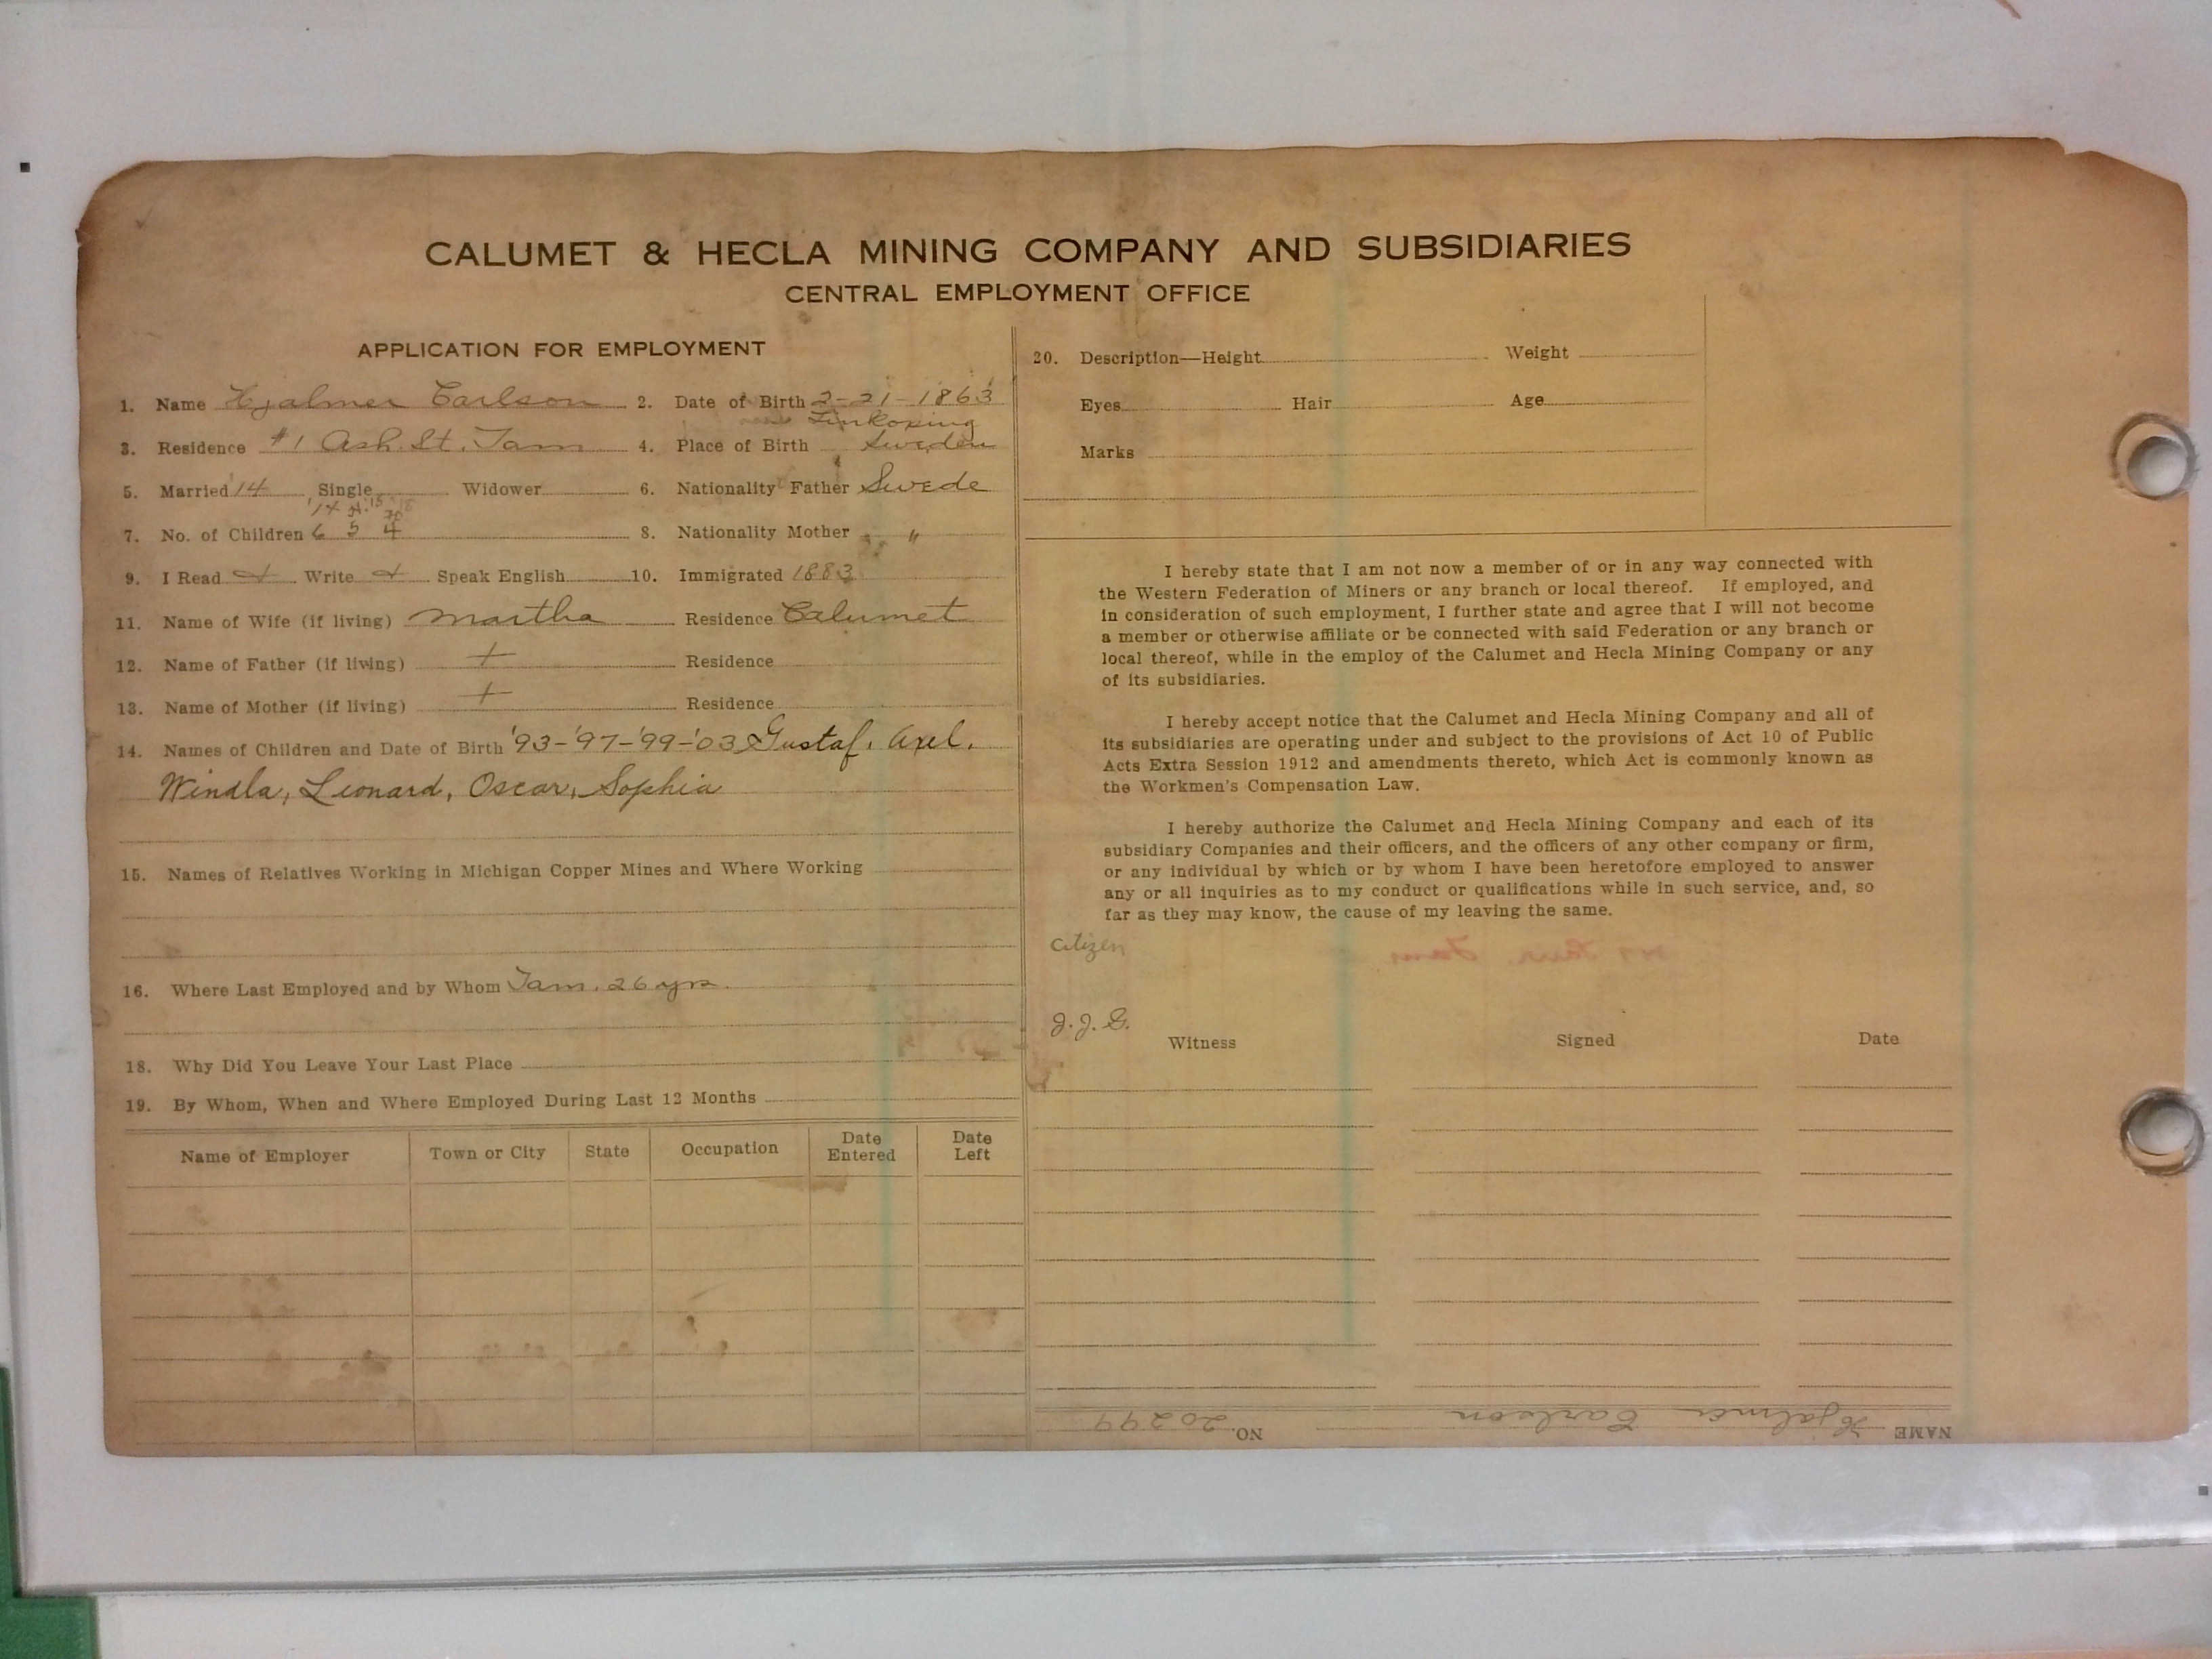 CALUMET & HECLA MINING COMPANY AND SUBSIDIARIES
CENTRAL EMPLOYMENT OFFICE
APPLICATION FOR EMPLOYMENT
1. Name Hjalmer Carlson 2. Date of Birth 2-21-1863
Linkoping
3. Residence #1 Ash. St. Tam 4. Place of Birth Sweden
5. Married '14 Single Widower 6. Nationality Father Swede
'14
7. No. of Children 6 5 4 8. Nationality Mother "
9. I Read Write Speak English 10. Immigrated 1883
11. Name of Wife (if living) Martha Residence Calumet
12. Name of Father (if living) + Residence
13. Name of Mother (if living) + Residence
14. Names of Children and Date of Birth '93-'97-'99-'03 Gustaf, Axel.
Windla, Leonard, Oscar, Sophia
15. Names of Relatives Working in Michigan Copper Mines and Where Working
16. Where Last Employed and by Whom Tam. 26 yrs.
18. Why Did You Leave Your Last Place
19. By Whom, When and Where Employed During Last 12 Months
Name of Employer Town or City State Occupation Date Entered Date Left
20. Description—Height Weight
Eyes Hair Age
Marks
I hereby state that I am not now a member of or in any way connected with
the Western Federation of Miners or any branch or local thereof. If employed, and
in consideration of such employment, I further state and agree that I will not become
a member or otherwise affiliate or be connected with said Federation or any branch or
local thereof, while in the employ of the Calumet and Hecla Mining Company or any
of its subsidiaries.
I hereby accept notice that the Calumet and Hecla Mining Company and all of
its subsidiaries are operating under and subject to the provisions of Act 10 of Public
Acts Extra Session 1912 and amendments thereto, which Act is commonly known as
the Workmen's Compensation Law.
I hereby authorize the Calumet and Hecla Mining Company and each of its
subsidiary Companies and their officers, and the officers of any other company or firm,
or any individual by which or by whom I have been heretofore employed to answer
any or all inquiries as to my conduct or qualifications while in such service, and, so
far as they may know, the cause of my leaving the same.
Citizen
J.J.G.
Witness Signed Date
NAME Hjalmer Carlson NO. 20299